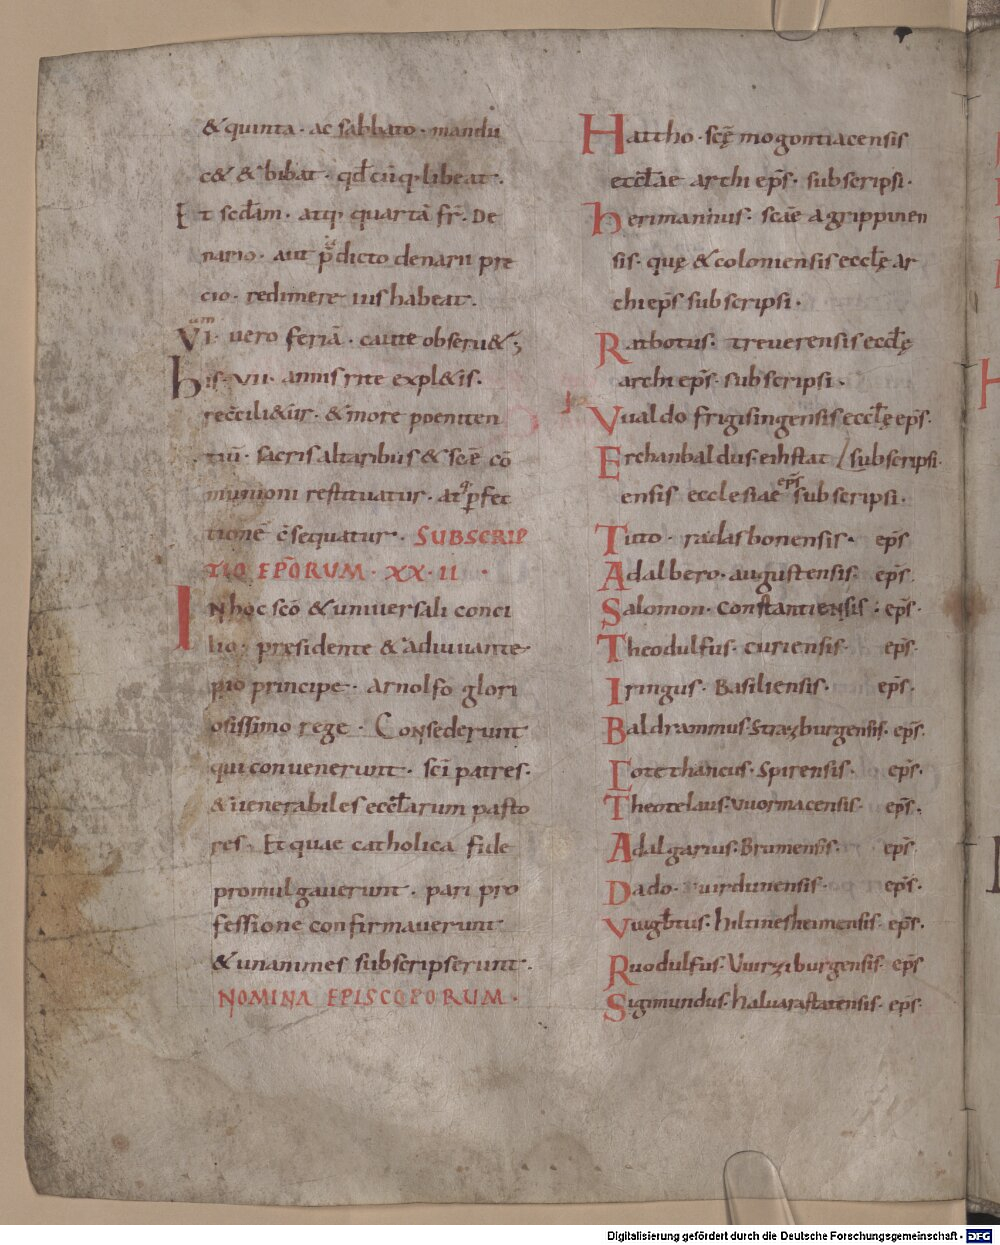 & quinta · ac sabbato · mandu
c& & bibat · qd̄ cūq; libeat ·
Et scd̄am · atq; quartā fr̄ · De
nario · aut p̄dicto denarii pre
cio · redimere ius habeat ·
VIam · uero feriā · caute obseru&;
his · VII · annis rite expl&is ·
recc̄ili&ur · & more poeniten
tiū · sacris altaribus & scē cō
munioni restituatur · atq; perfec
tionē c̄sequatur · SUBSCRIP
TIO EP̄ORUM · XX · II ·
IN hoc scō & uniuersali conci
lio · presidente & adiuuante
pio principe · arnolfo glori
osissimo rege · Consederunt
qui conuenerunt · sc̄i patres ·
& uenerabiles eccl̄arum pasto
res · Et quae catholica fide
promulgauerunt · pari pro
fessione confirmauerunt
& unanimes subscripserunt ·
NOMINA EPISCOPORUM ·
Hattho · scę̄ mogontiacensis
eccl̄ae archi ep̄s · subscripsi ·
herimannus · scāe agrippinen
sis · quę & coloniensis ecclę̄ ar
chi ep̄s subscripsi ·
Ratbotus · treuerensis ecclę̄
archi ep̄s · subscripsi ·
Vualdo frigisingensis ecclę̄ ep̄s ·
Erchanbaldus · eihstat subscripsi ·
ensis ecclesiae ep̄s subscripsi ·
Tuto · radasbonensis · ep̄s
Adalbero · augustensis · ep̄s ·
Salomon · Constantiensis · ep̄s ·
Theodulfus · curiensis · ep̄s ·
Iringus · Basiliensis · ep̄s ·
Baldrammus · Strazburgensis · ep̄s ·
Gotethancus · Spirensis · ep̄s ·
Theotelaus · Vuormacensis · ep̄s ·
Adalgarius · Brumensis · ep̄s ·
Dado · Vuirdunensis · ep̄s ·
Vuigb̄tus · hiltinesheimensis · ep̄s ·
Ruodulfus · Vuirziburgensis · ep̄s
Sigimundus · haluarastatensis · ep̄s ·
Digitalisierung gefördert durch die Deutsche Forschungsgemeinschaft - DFG